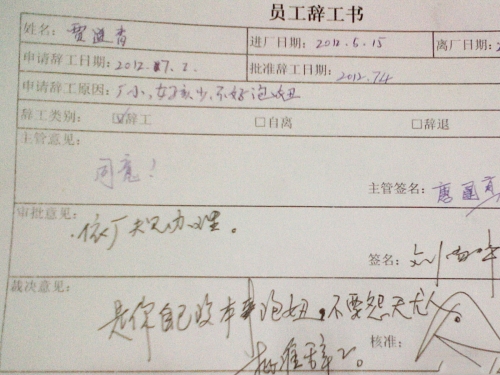 员工辞工书
姓名： 贾 青 进厂日期：2012.6.15 离厂日期：2
申请辞工日期：2012.7.2. 批准辞工日期：2012.7.4
申请辞工原因：厂小，女孩少，不好泡妞
辞工类别： ☑辞工 □自离 □辞退
主管意见：
同意！
主管签名：唐
审批意见：
依厂规办理。
签名：刘
裁决意见：
是你自己没本事泡妞，不要怨天尤人。
核准：
批准辞工。